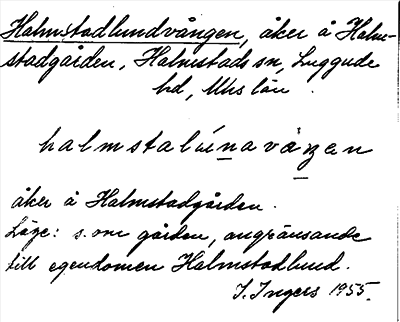 Halmstadlundvången, åker å Halm-
stadgården, Halmstads sn, Luggude
hd, Mhs län.
halmstalúnavåŋen
åker å Halmstadgården.
Läge: s. om gården, angränsande
till egendomen Halmstadlund.
I. Ingers 1955.